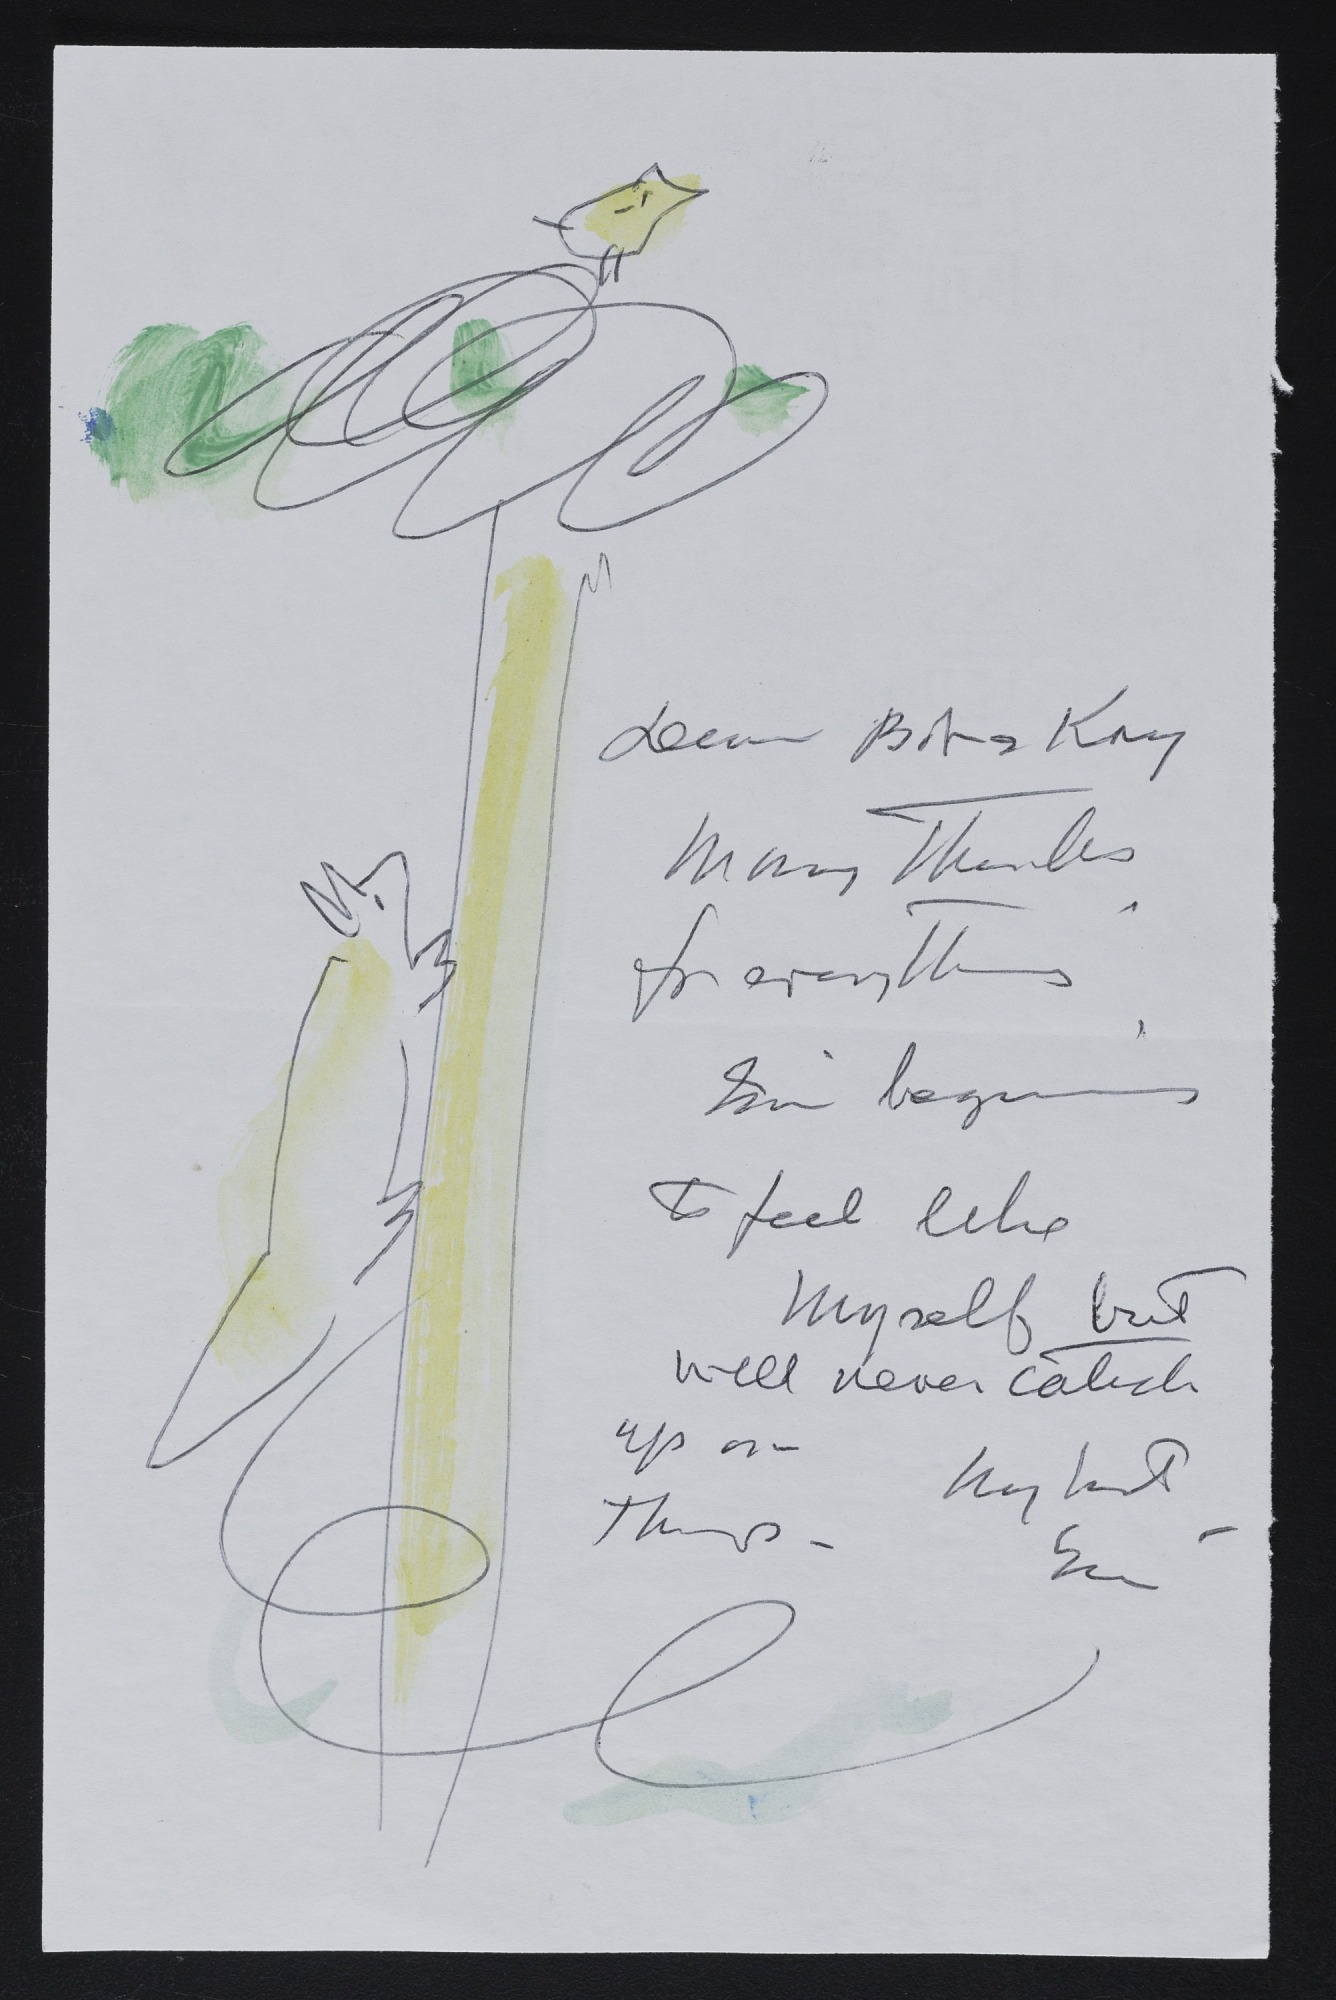 Dear Bob & Kay
Many Thanks
for everything
I'm beginning
to feel like
myself but
will never catch
up on
Things - My best